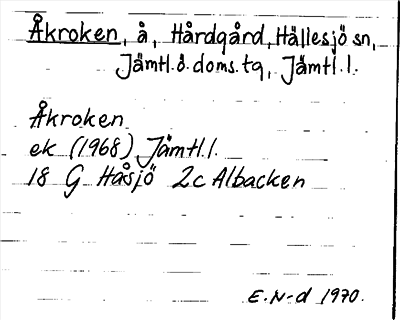 Åkroken, å, Hårdgård, Hällesjö sn,
Jämtl.ö.doms.tg, Jämtl.l.
Åkroken
ek (1968) Jämtl.l.
18 G Håsjö 2c Albacken
E.N-d 1970.